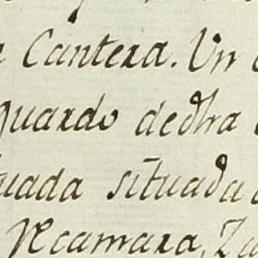 Cantera. Un
quardo dedha
uada situada
Recamara, Za